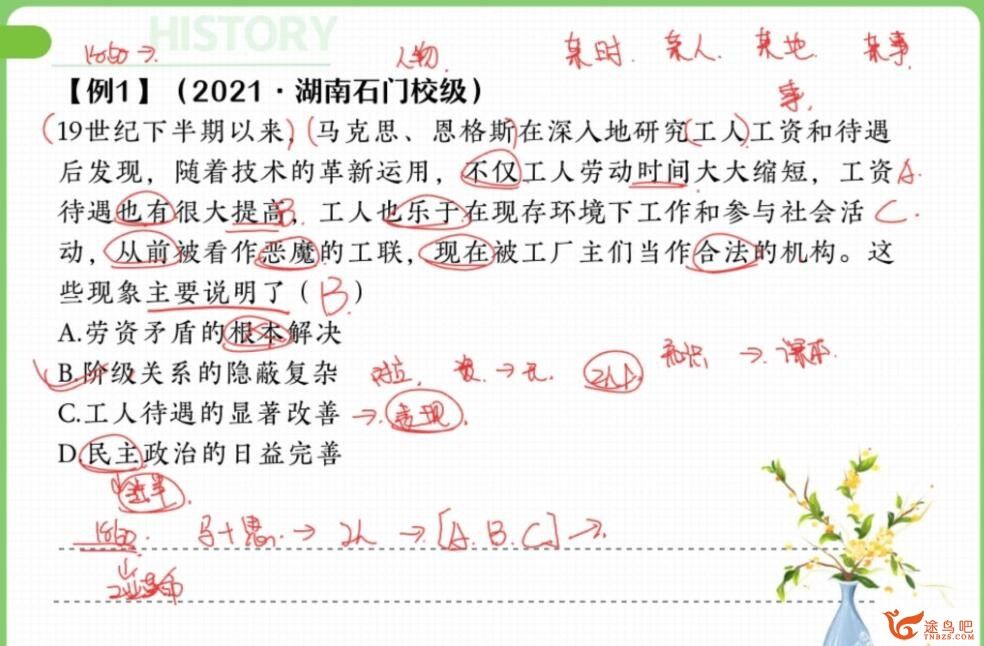 HISTORY
1860 → 人物 某时. 某人. 某地. 某事
事.
【例1】（2021·湖南石门校级）
19世纪下半期以来，马克思、恩格斯在深入地研究工人工资和待遇
后发现，随着技术的革新运用，不仅工人劳动时间大大缩短，工资 A.
待遇也有很大提高 B，工人也乐于在现存环境下工作和参与社会活 C.
动，从前被看作恶魔的工联，现在被工厂主们当作合法的机构。这
些现象主要说明了（ B ）
A.劳资矛盾的根本解决
B.阶级关系的隐蔽复杂 对立. 资 → 无. 工人 知识 → 课本.
C.工人待遇的显著改善 → 表现.
D.民主政治的日益完善
1860. 马+恩. → 工人 → [A. B. C] →.
↓
工业革命
途鸟吧
TNBZS.COM